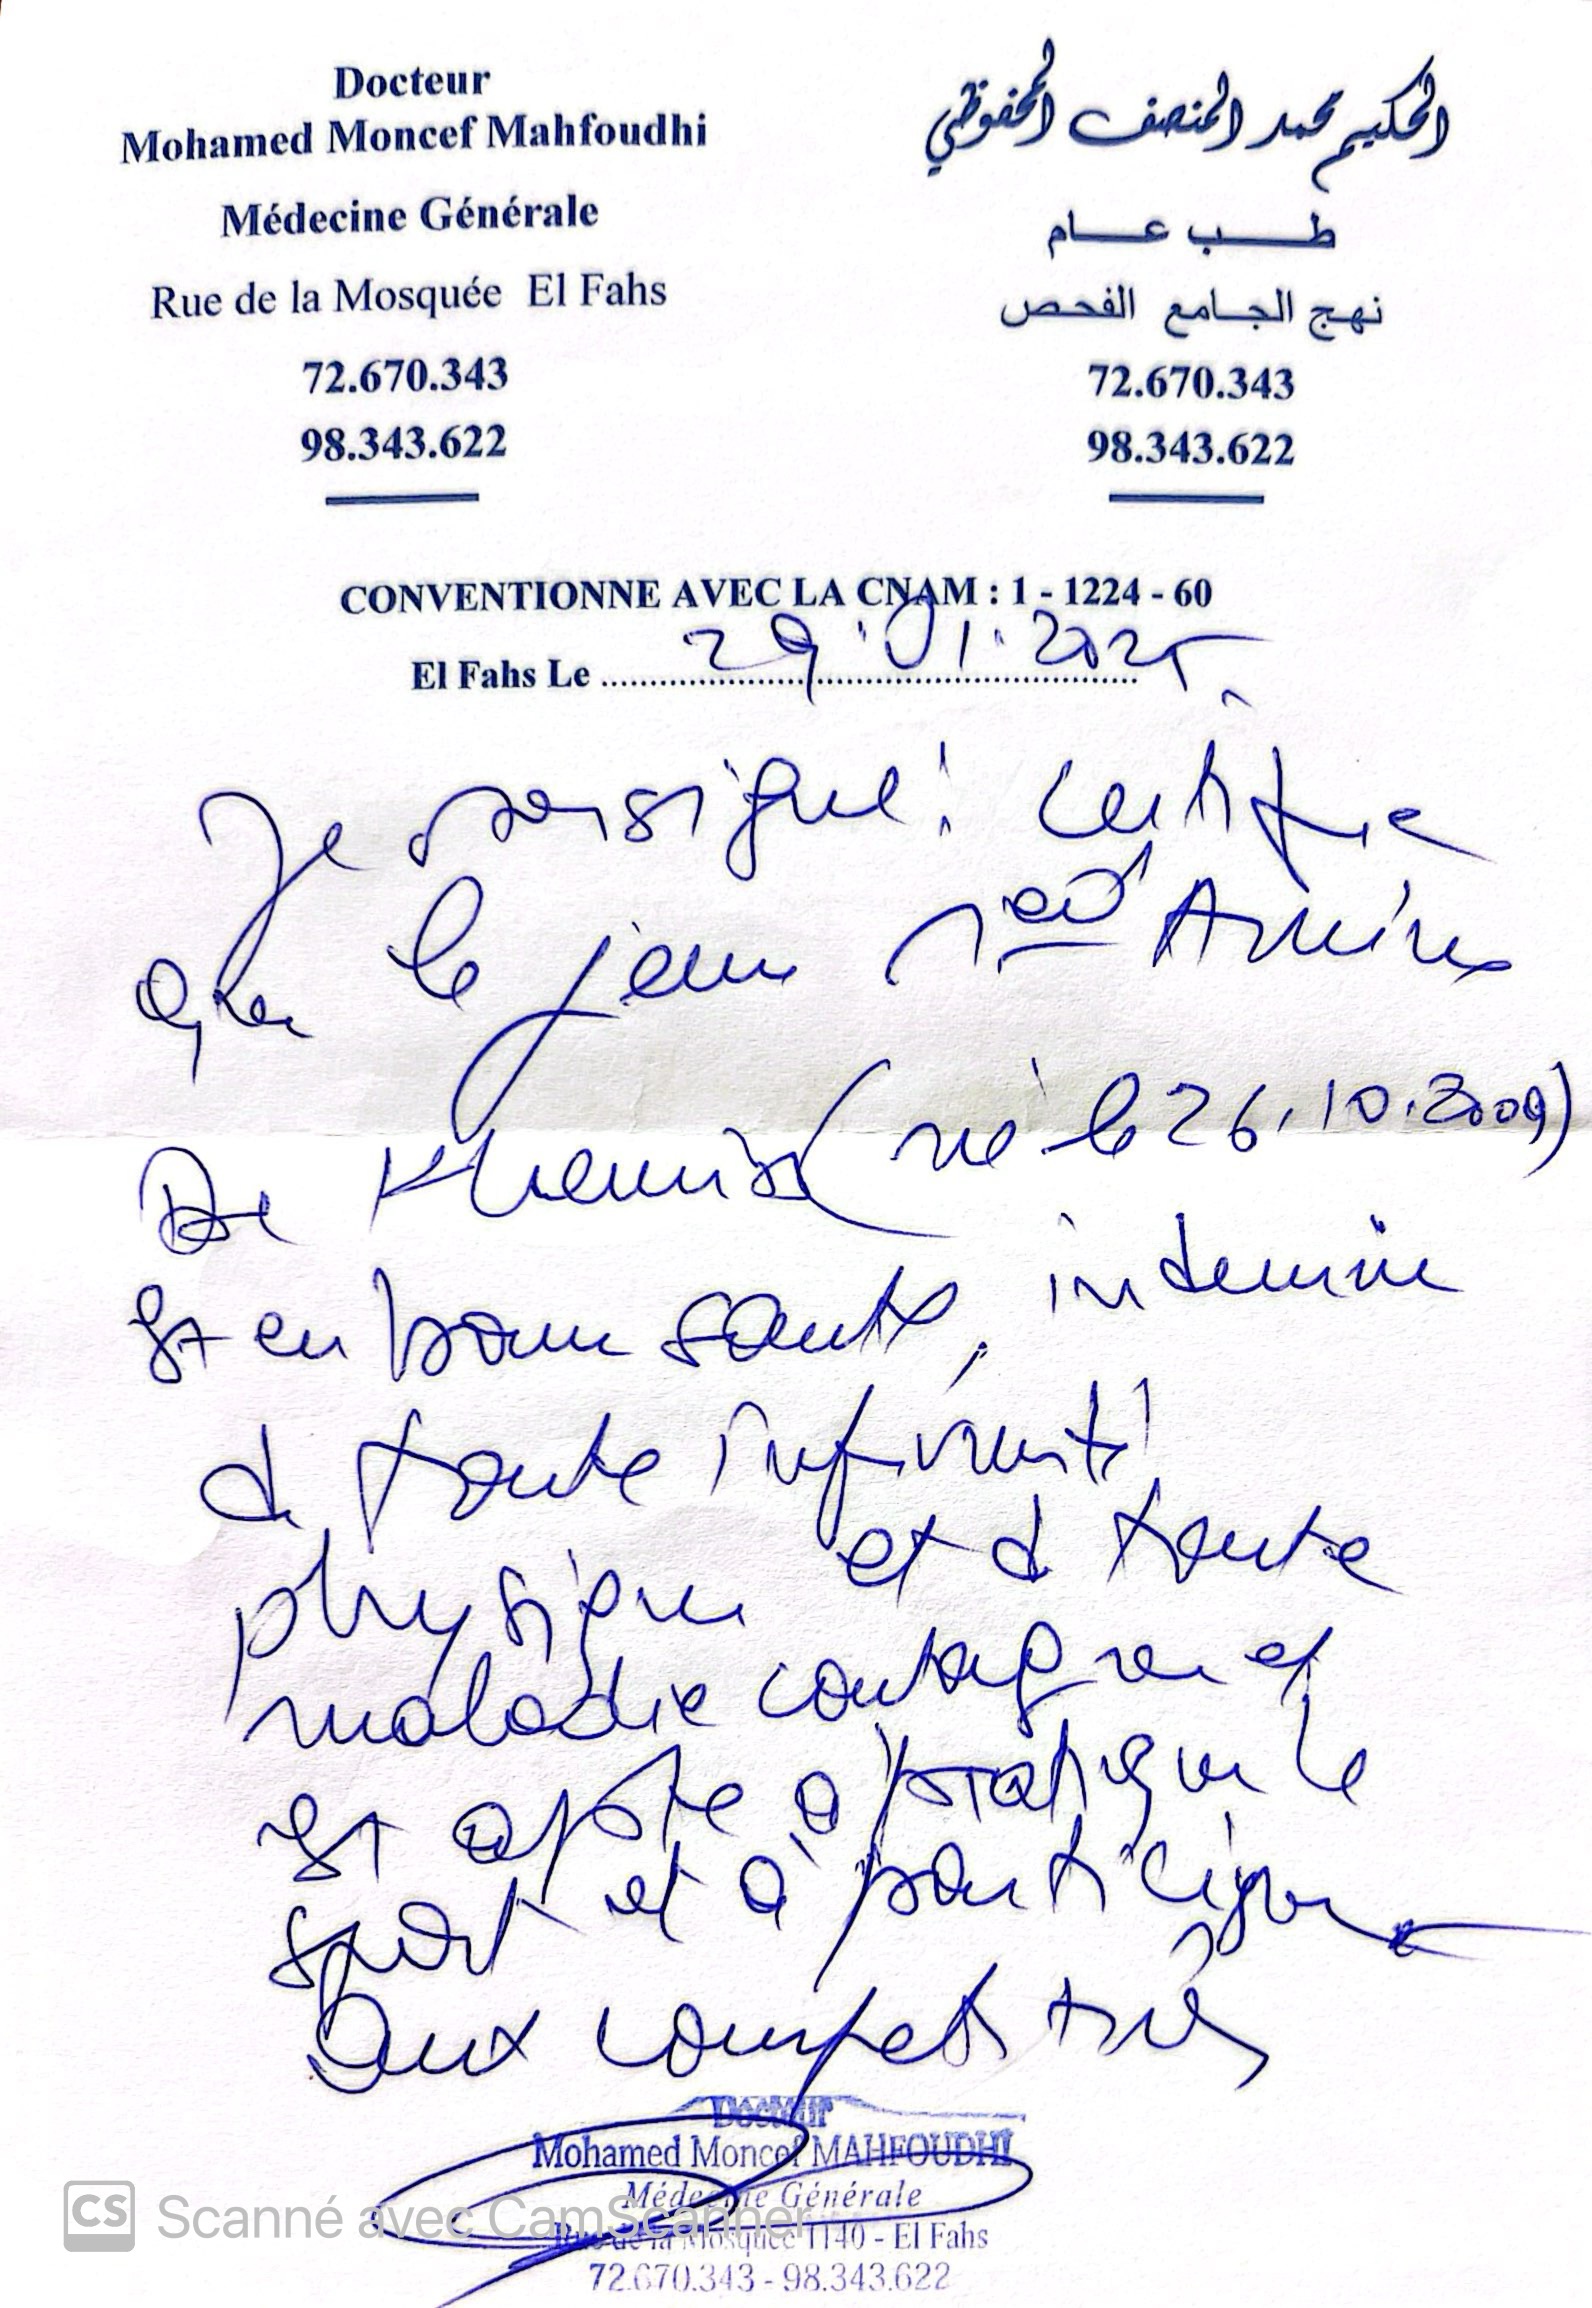 Docteur
Mohamed Moncef Mahfoudhi
Médecine Générale
Rue de la Mosquée El Fahs
72.670.343
98.343.622
الحكيم محمد المنصف المحفوظي
طب عام
نهج الجامع الفحص
72.670.343
98.343.622
CONVENTIONNE AVEC LA CNAM : 1 - 1224 - 60
El Fahs Le 29.01.2025
Je soussigné certifie
que le jeune Med Amine
Be Khemis (né le 26.10.2009)
Est en bonne santé, indemne
de toute infirmité
physique et de toute
maladie contagieuse et
est apte à pratiquer le
sport et à participer
aux compétitions
Docteur
Mohamed Moncef MAHFOUDHI
Médecine Générale
Rue de la Mosquée 1140 - El Fahs
72.670.343 - 98.343.622
CS Scanné avec CamScanner